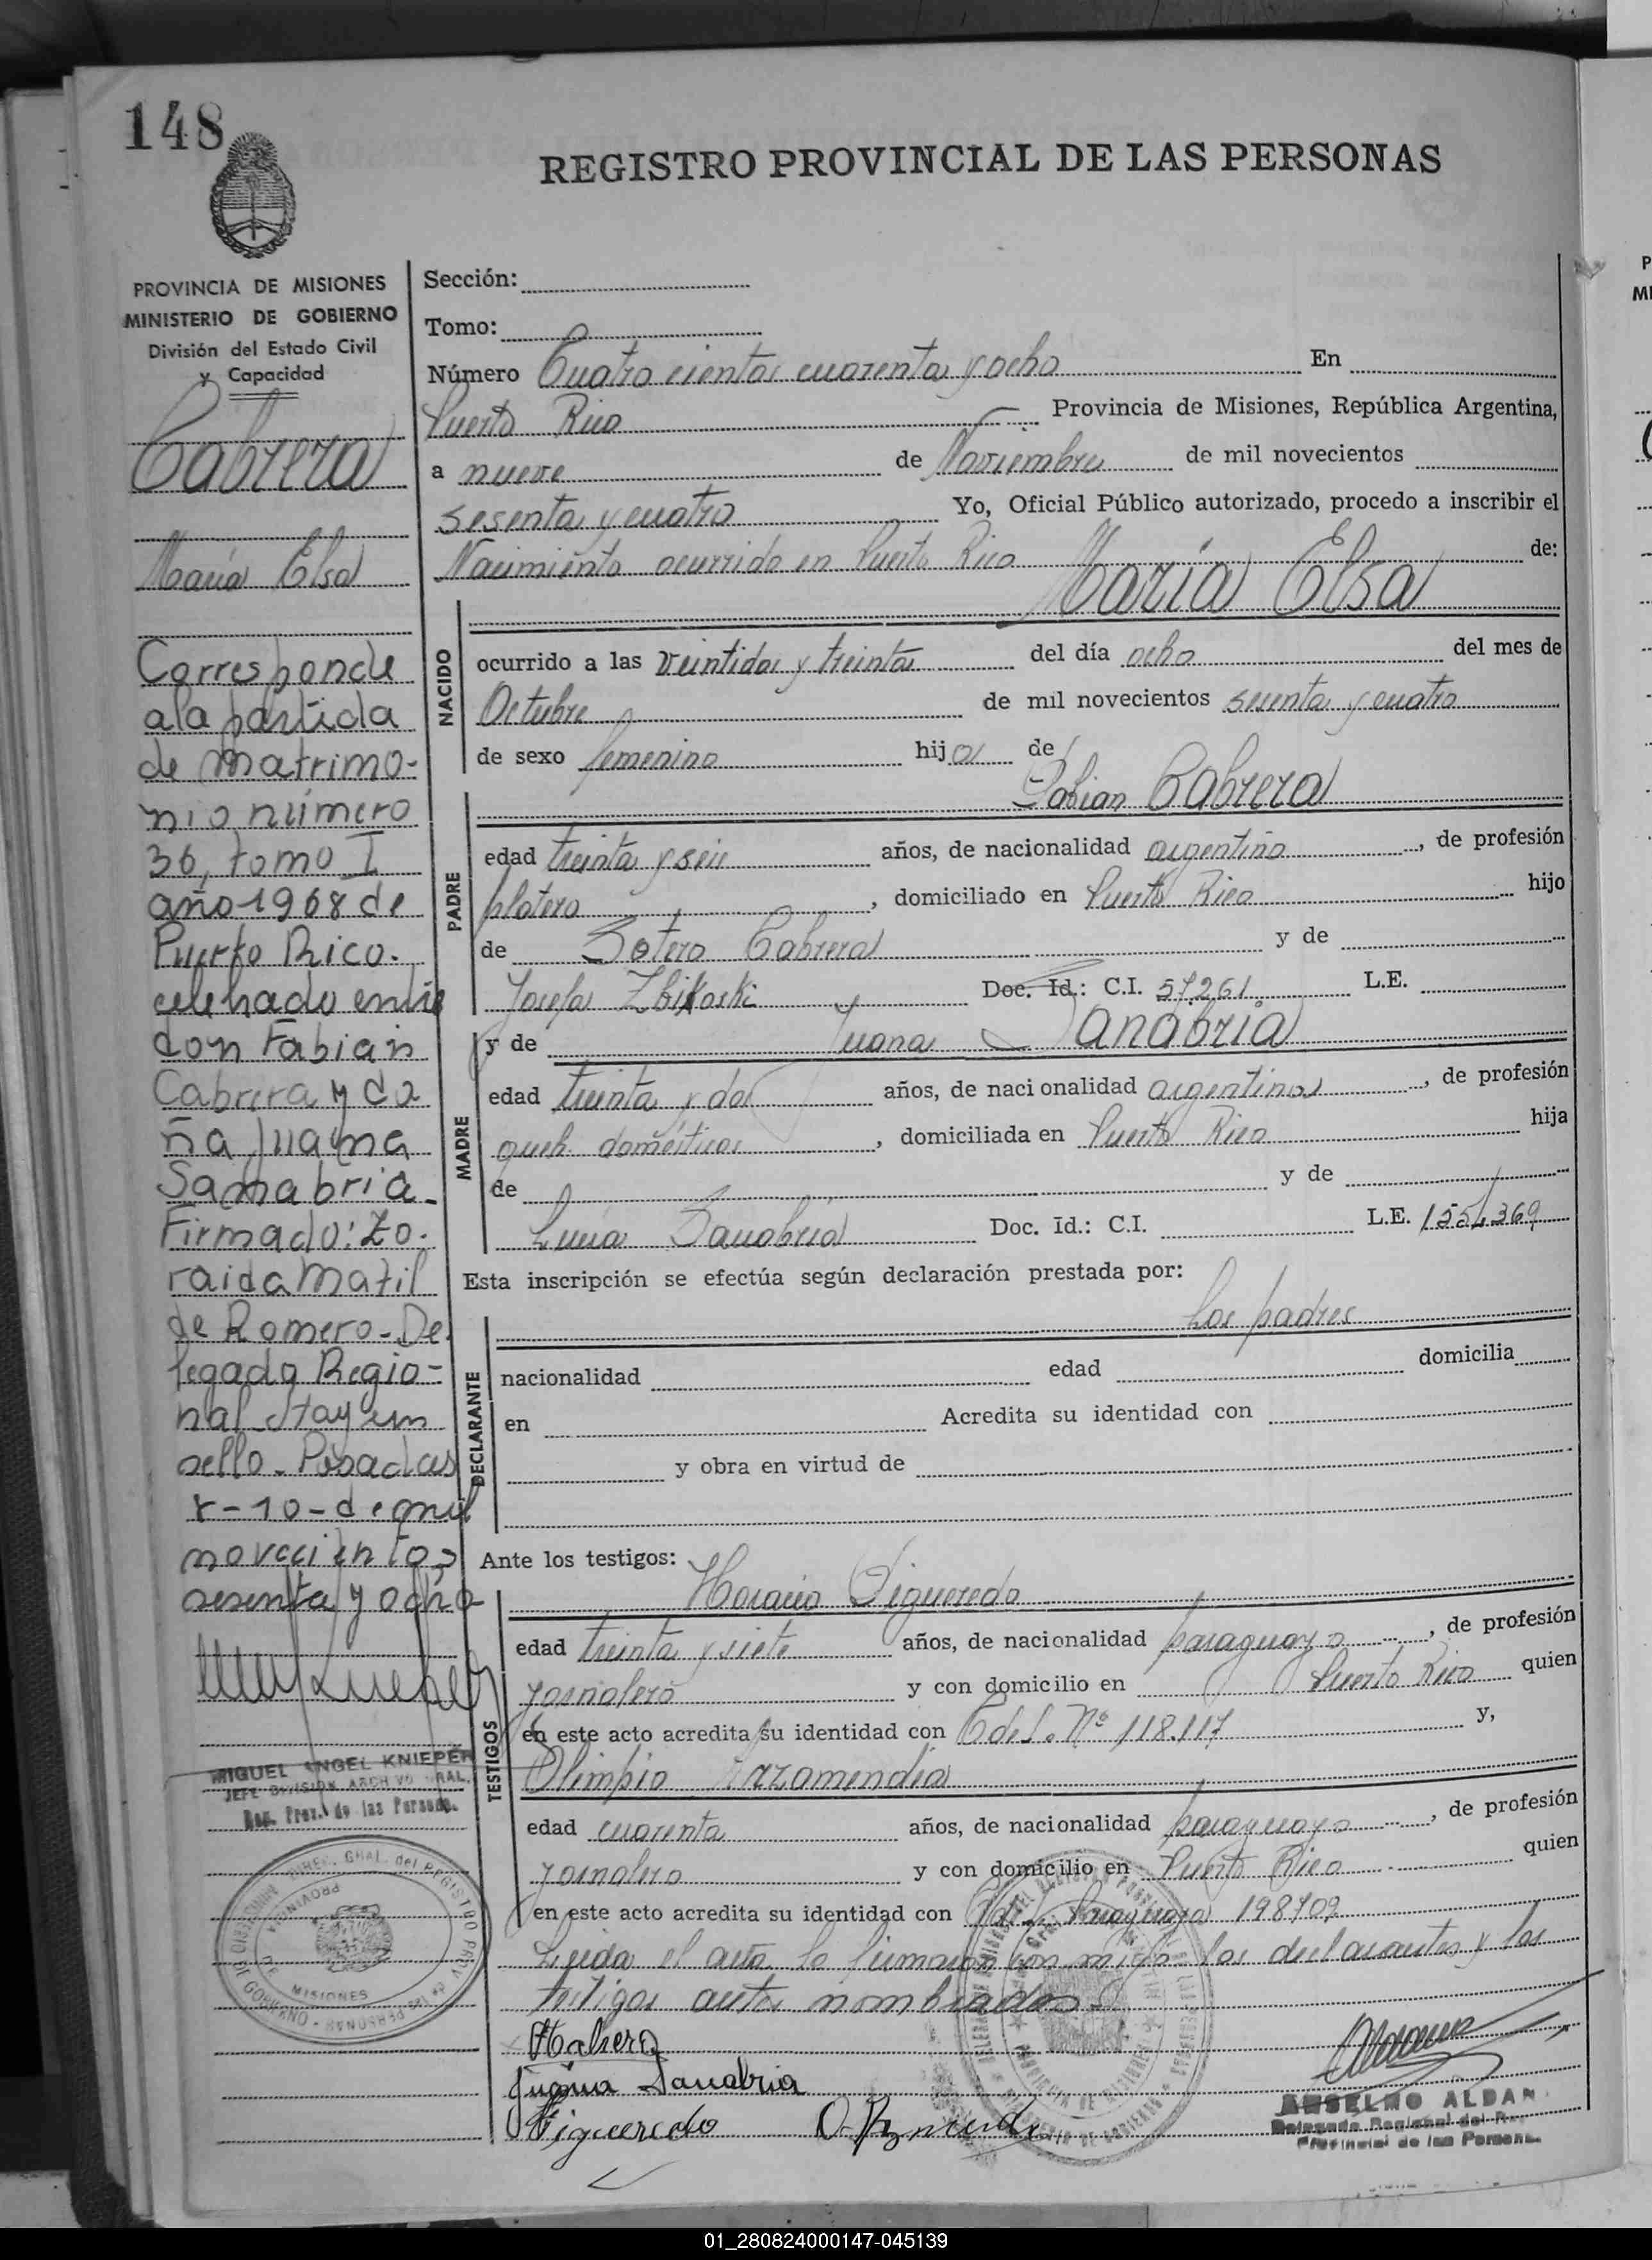 148
REGISTRO PROVINCIAL DE LAS PERSONAS
PROVINCIA DE MISIONES
MINISTERIO DE GOBIERNO
División del Estado Civil
y Capacidad
Cabrera
María Elsa
Corresponde
a la partida
de matrimo-
nio número
36, tomo I
año 1968 de
Puerto Rico.
celebrado entre
don Fabian
Cabrera y do
ña Juana
Sanabria.
Firmado: Zo.
raida Matil
de Romero - De
legado Regio-
nal - Hay un
sello - Posadas
8-10-de mil
novecientos
sesenta y ocho
MIGUEL ANGEL KNIEPER
JEFE DIVISION ARCH VO GRAL.
Reg. Prov. de las Personas.
DIREC. GRAL. del REGISTRO PROV. de las PERSONAS - MINISTERIO DE GOBIERNO
PROVINCIA DE MISIONES
Sección:
Tomo:
Número Cuatro cientos cuarenta y ocho En
Puerto Rico Provincia de Misiones, República Argentina,
a nueve de Noviembre de mil novecientos
sesenta y cuatro Yo, Oficial Público autorizado, procedo a inscribir el
Nacimiento ocurrido en Puerto Rico de:
María Elsa
NACIDO
ocurrido a las veintidos y treinta del día ocho del mes de
Octubre de mil novecientos sesenta y cuatro
de sexo femenino hija de
Fabian Cabrera
PADRE
edad treinta y seis años, de nacionalidad argentino, de profesión
plotero, domiciliado en Puerto Rico hijo
de Sotero Cabrera y de
Josefa Zbikoski Doc. Id.: C.I. 57.261. L.E.
y de Juana Sanabria
MADRE
edad treinta y dos años, de nacionalidad argentina, de profesión
queh. domésticos, domiciliada en Puerto Rico hija
de y de
Lucía Sanabria Doc. Id.: C.I. L.E. 1554369
Esta inscripción se efectúa según declaración prestada por:
Los padres
DECLARANTE
nacionalidad edad domicilia
en Acredita su identidad con
y obra en virtud de
Ante los testigos:
Horacio Figueredo
TESTIGOS
edad treinta y siete años, de nacionalidad paraguayo, de profesión
jornalero y con domicilio en Puerto Rico quien
en este acto acredita su identidad con C de I. Nº 118.117 y,
Olimpio Razamendia
edad cuarenta años, de nacionalidad paraguayo, de profesión
jornalero y con domicilio en Puerto Rico quien
en este acto acredita su identidad con C de I. Paraguaya 198709
Leida el acta la firmaron con migo los declarantes y los
testigos antes nombrados.
Juana Sanabria
Figueredo
ANSELMO ALDAN
Delegado Regional del R
Provincial de las Persona
01_280824000147-045139